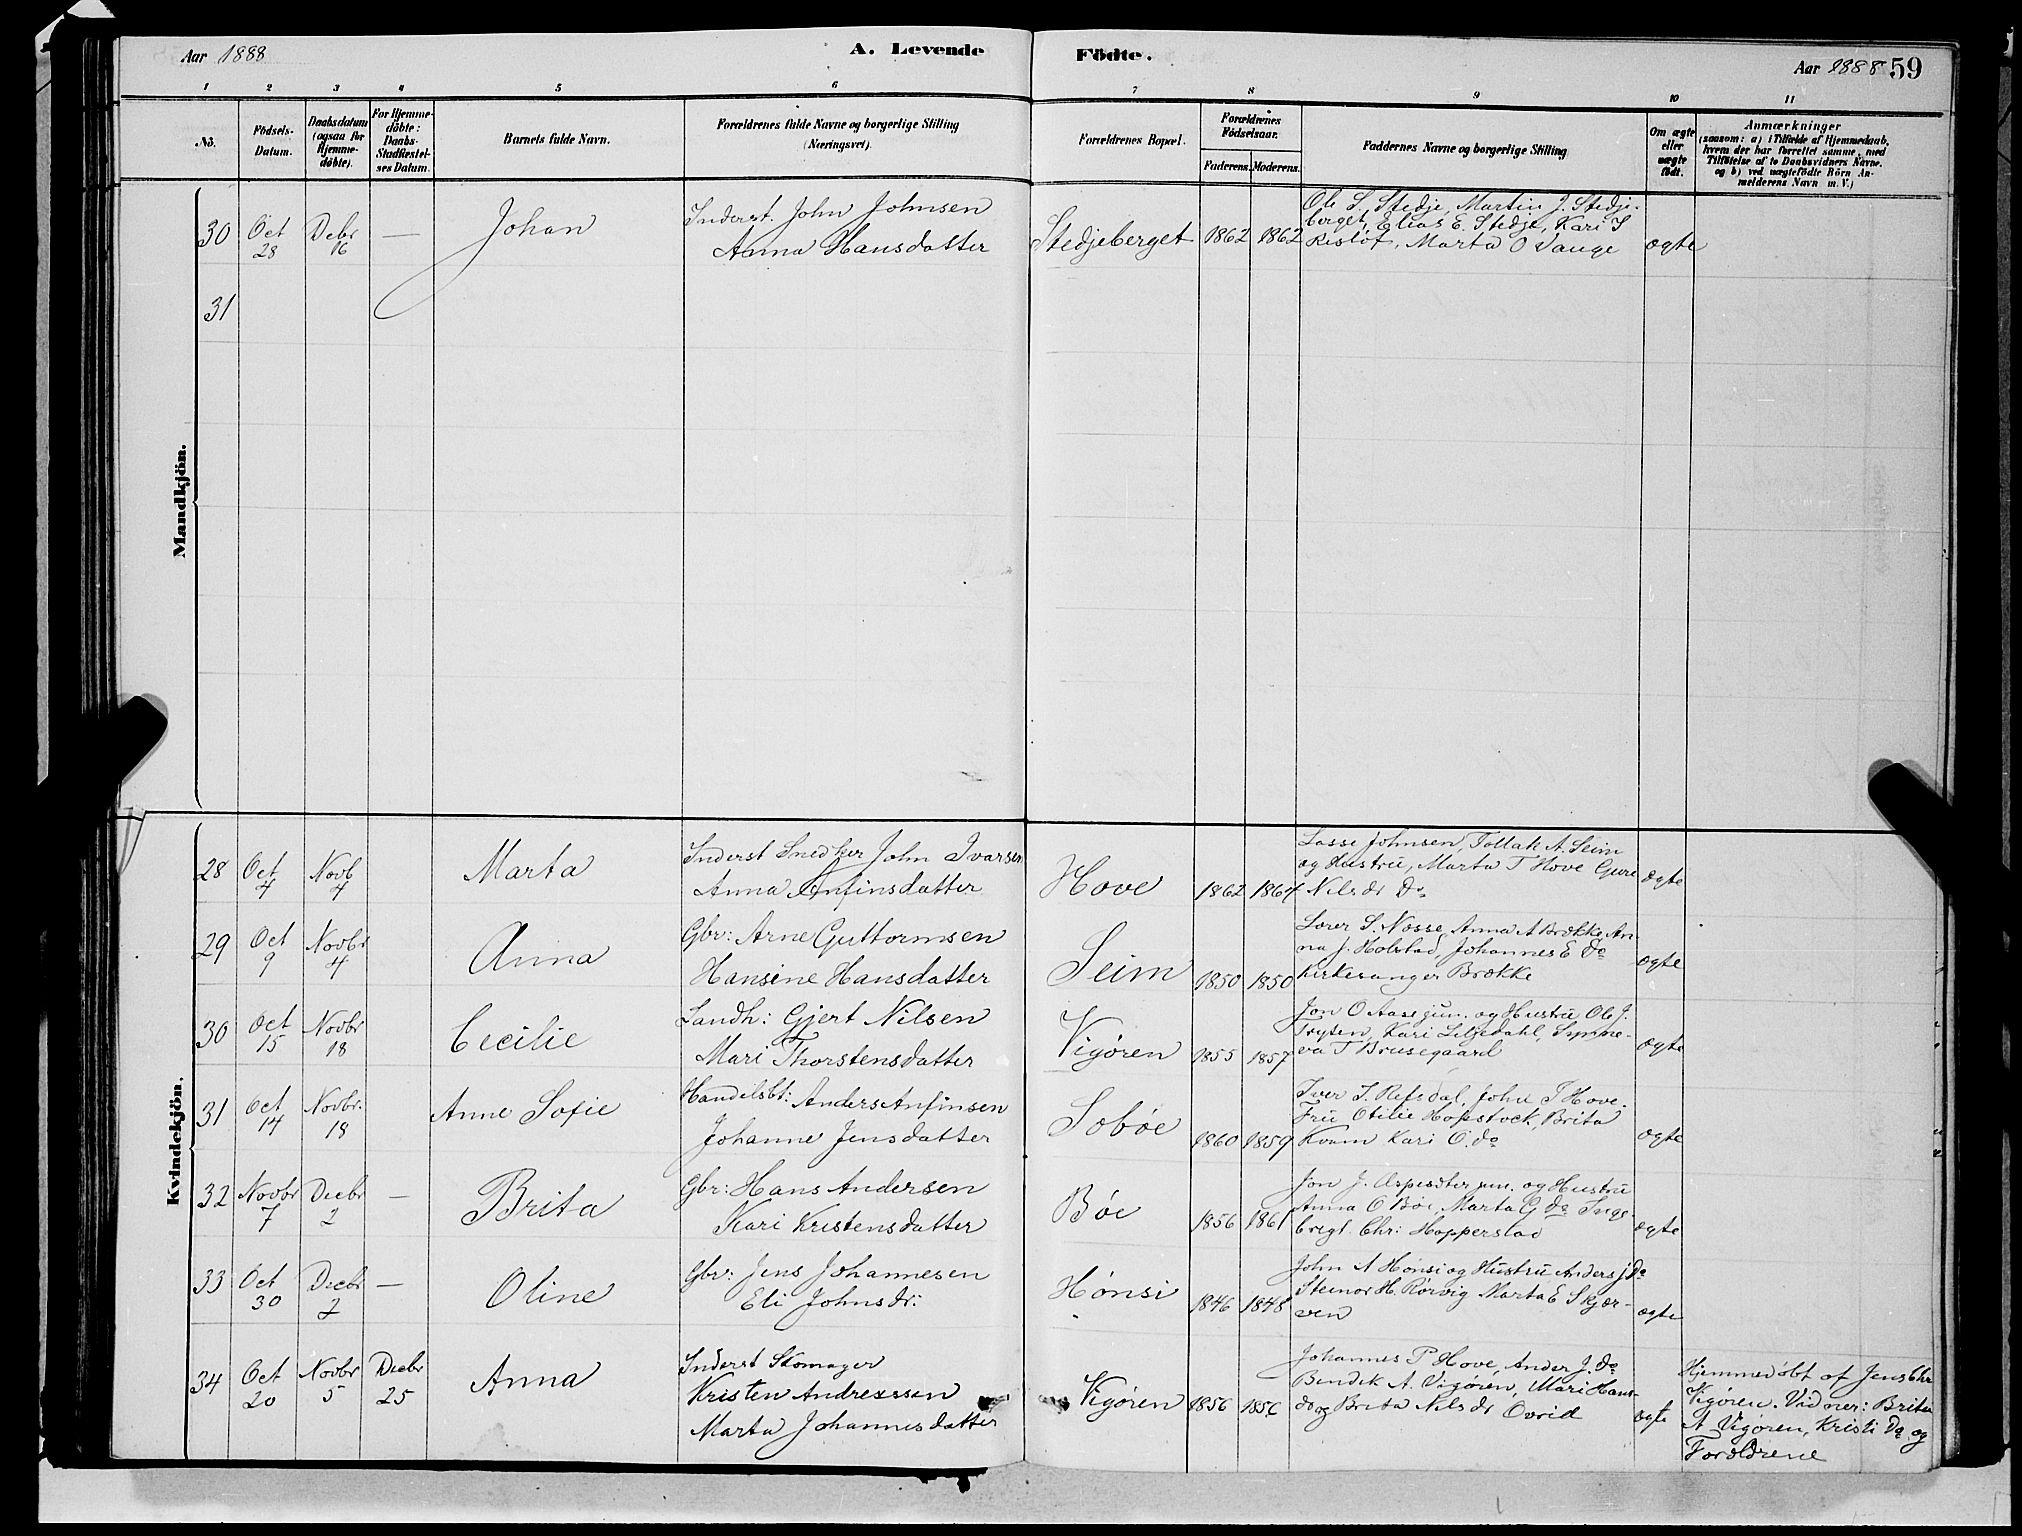 Aar 1888
A. Levende Födte.
Aar 1888 59
1 2 3 4 5 6 7 8 9 10 11
No.
Födsels-
Datum.
Daabsdatum
(ogsaa for
Hjemme-
döbte).
For Hjemme-
döbte:
Daabs-
Stadfæstel-
ses Datum.
Barnets fulde Navn.
Forældrenes fulde Navne og borgerlige Stilling
(Næringsvei).
Forældrenes Bopæl.
Forældrenes
Födselsaar.
Faderens. Moderens.
Faddernes Navne og borgerlige Stilling
Om ægte
eller
uægte
födt.
Anmærkninger
(saasom: a) i Tilfælde af Hjemmedaab,
hvem der har forrettet samme, med
Tilföielse af to Daabsvidners Navne,
og b) ved uægtefödte Börn An-
melderens Navn m. V.)
Mandkjön.
30 Oct 28 Debr 16 — Johan
Inderst. John Johnsen
Anna Hansdatter
Stedjeberget 1862 1862
Ole L. Stedje, Martin J. Stedje-
berget, Elias E. Stedje, Kari S
Marta O
ægte
31
Kvindekjön.
28 Oct 4 Novb 4 Marta
Inderst Snedker John Ivarsen
Anna Anfinsdatter
Hove 1862 1864
Lasse Johnsen, Tollak A. Seim
og Hustru, Marta T Hove Gure
Nilsdr Do
ægte
29 Oct 9 Novbr 4 Anna
Gbr: Arne Guttormsen
Hansine Hansdatter
Seim 1850 1850
Lærer S. Nosse, Anna A Brække, An-
na J. Holstad, Johannes E Do
Kirkesanger Brække
ægte
30 Oct 15 Novbr 18 Cecilie
Landh: Gjert Nilsen
Mari Thorstensdatter
Vigøren 1855 1857
Jon O Aase jun. og Hustru Ole J.
Kari Liljedahl, Synne-
va T Brusegaard
ægte
31 Oct 14 Novbr. 18 Anne Sofie
Handelsbt: Anders Anfinsen
Johanne Jensdatter
Sobøe 1860 1859
Iver I. Refsdal, John T Hove.
Fru Otilie Hopstock, Brita
Kvam Kari O. do
ægte
32 Novbr 7 Decbr 2 — Brita
Gbr: Hans Andersen
Kari Kristensdatter
Bøe 1856 1861
Jon J. jun. og Hustru
Anna O Bøe, Marta G do Inge-
brigt Chr: Hopperstad
ægte
33 Oct 30 Decbr 2 — Oline
Gbr: Jens Johannesen
Eli Johnsdr:
Hønsi 1846 1848
John A Hønsi og Hustru Anders J Do
Steinor H. Rørvig Marta E Skjær-
ven
ægte
34 Oct 20 Novbr 5 Decbr 25 Anna
Inderst Skomager
Kristen Andreassen
Marta Johannesdatter
Vigøren 1856 1856
Johannes P Hove, Ander J. do
Bendik A. Vigøren, Mari Hans-
do og Brita Nilsdr Øvrid
ægte
Hjemmedøbt af Jens Chr
Vigøren. Vidner: Brita
A Vigøren, Kristi Do og
Forældrene